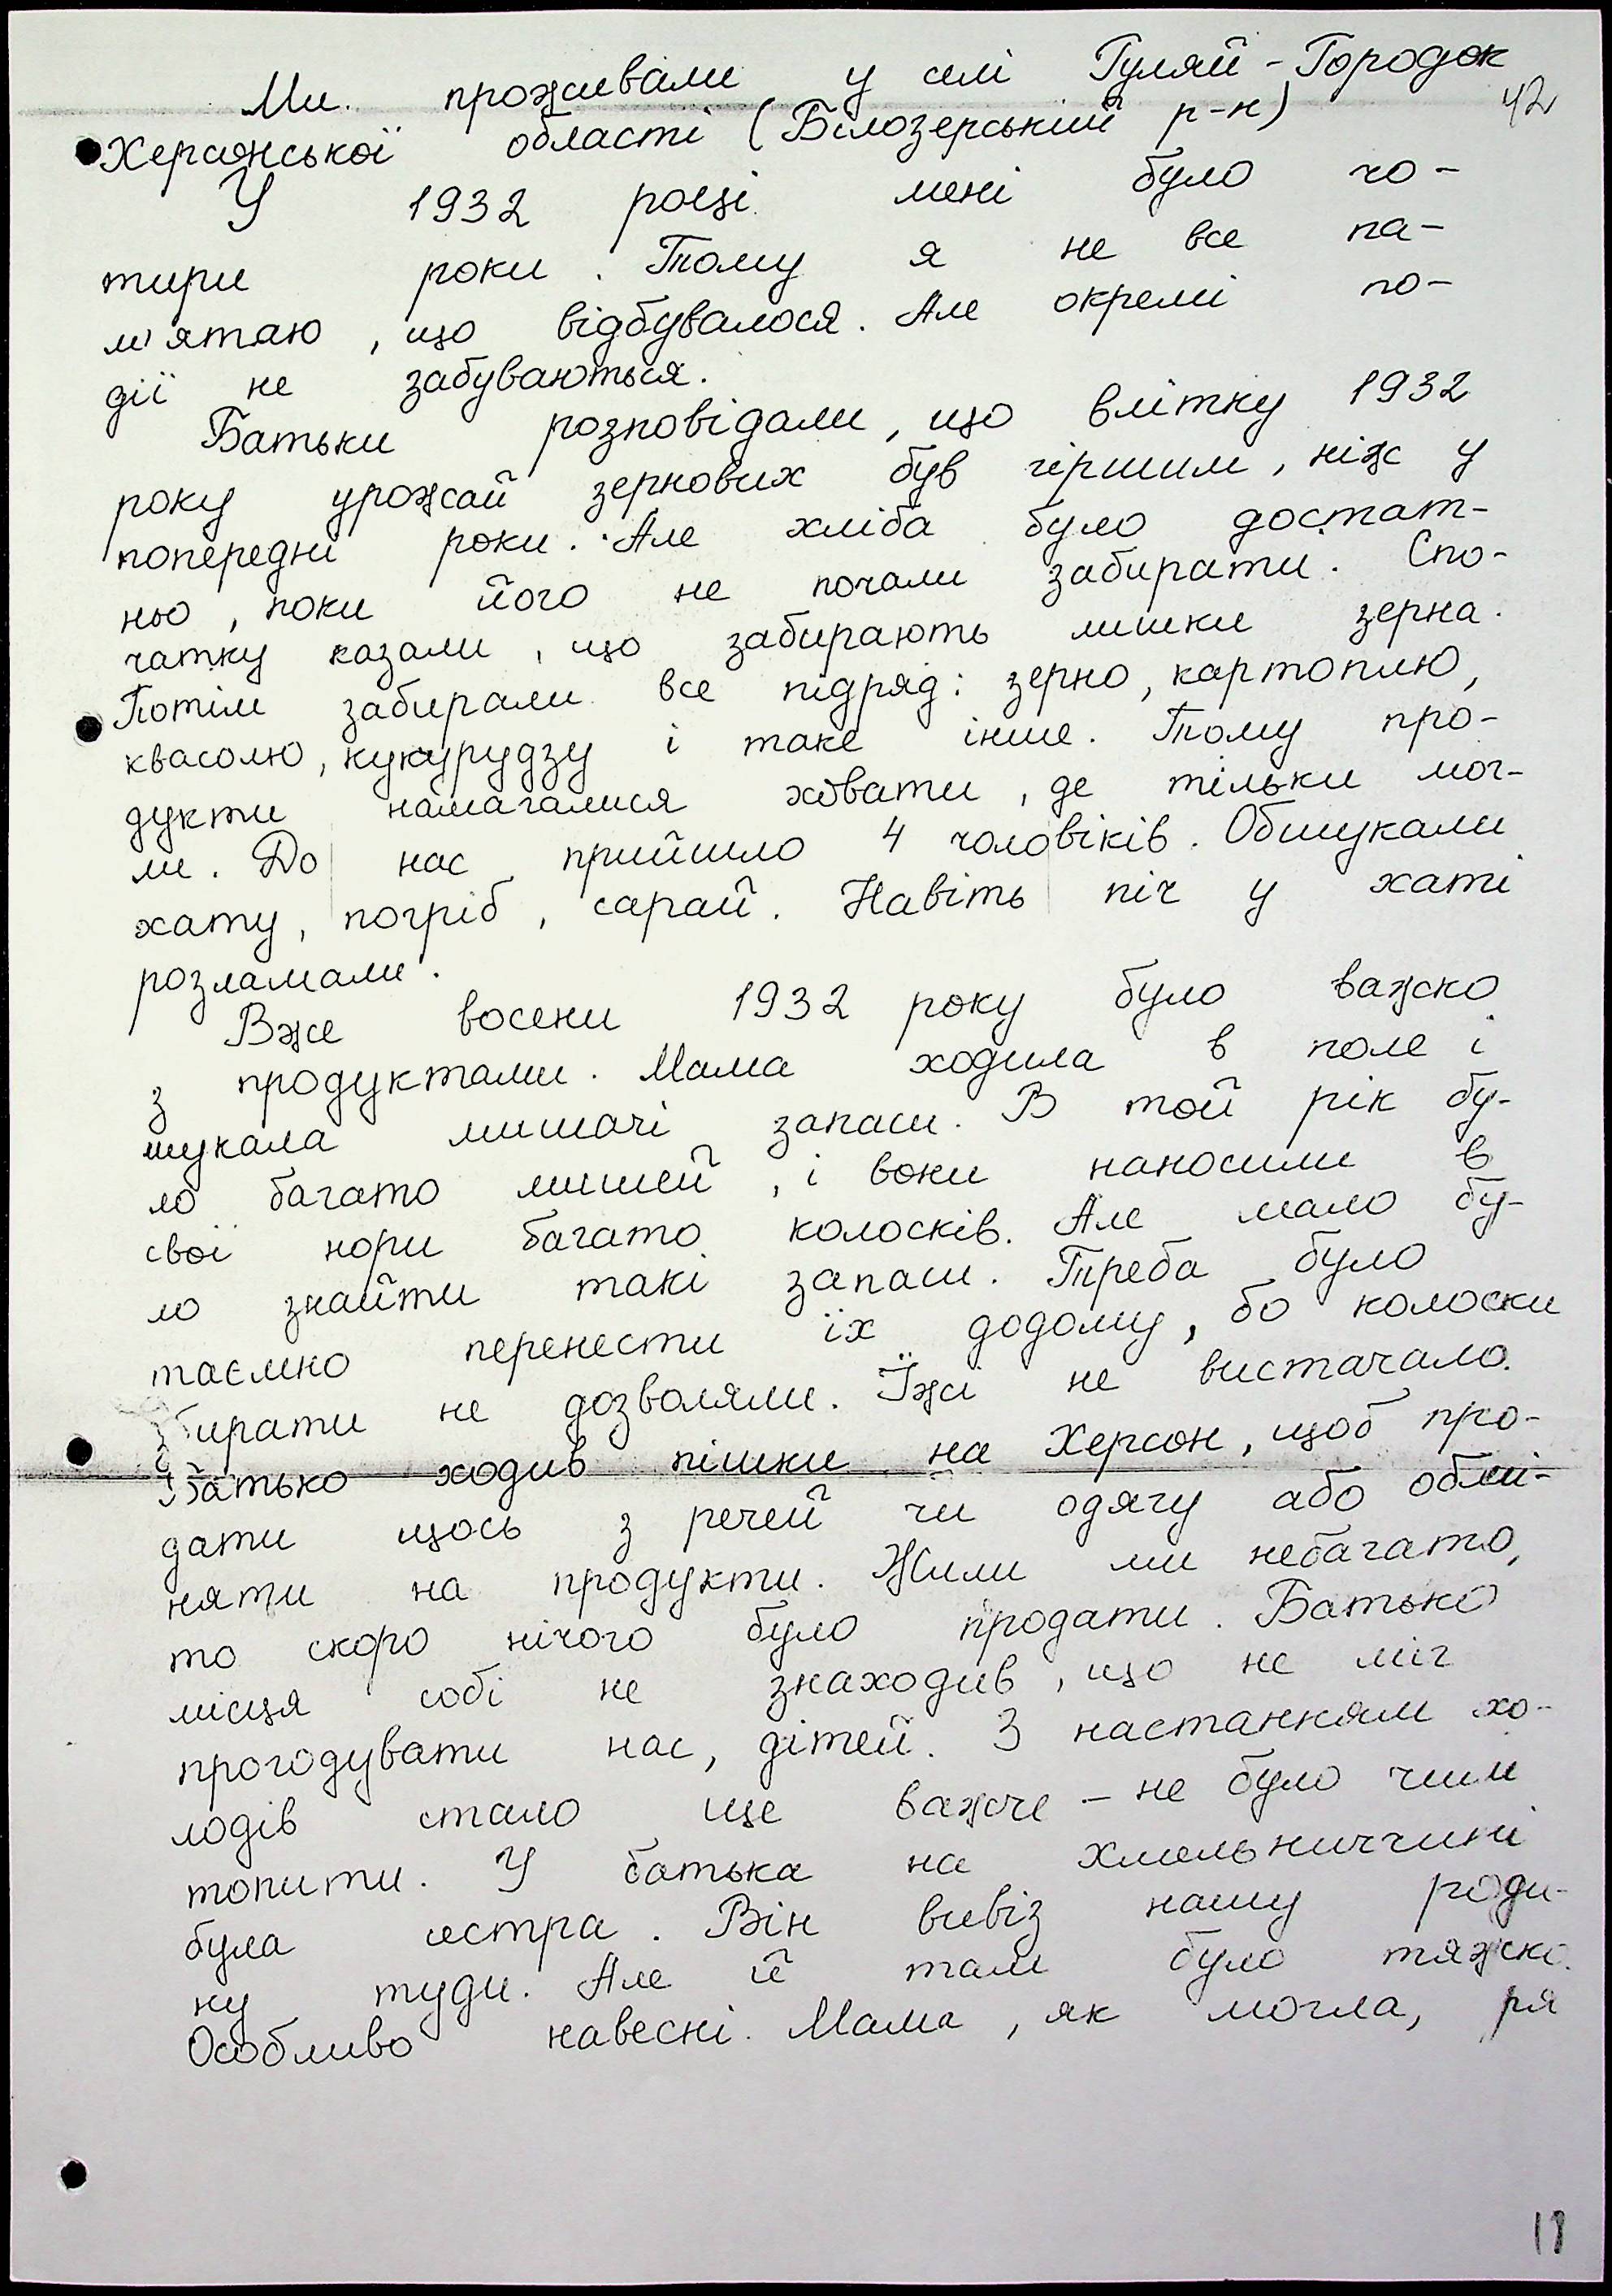 Ми проживали у селі Гуляй-Городок
42
Херсонської області (Білозерський р-н)
У 1932 році мені було чо-
тири роки. Тому я не все па-
м'ятаю, що відбувалося. Але окремі по-
дії не забуваються.
Батьки розповідали, що влітку 1932
року урожай зернових був гіршим, ніж у
попередні роки. Але хліба було достат-
ньо, поки його не почали забирати. Спо-
чатку казали, що забирають лишки зерна.
Потім забирали все підряд: зерно, картоплю,
квасолю, кукурудзу і таке інше. Тому про-
дукти намагалися ховати, де тільки мог-
ли. До нас прийшло 4 чоловіків. Обшукали
хату, погріб, сарай. Навіть піч у хаті
розламали.
Вже восени 1932 року було важко
з продуктами. Мама ходила в поле і
шукала мишачі запаси. В той рік бу-
ло багато мишей, і вони наносили в
свої нори багато колосків. Але мало бу-
ло знайти такі запаси. Треба було
таємно перенести їх додому, бо колоски
збирати не дозволяли. Їжі не вистачало.
Батько ходив пішки на Херсон, щоб про-
дати щось з речей чи одягу або обмі-
няти на продукти. Жили ми небагато,
то скоро нічого було продати. Батько
місця собі не знаходив, що не міг
прогодувати нас, дітей. З настанням хо-
лодів стало ще важче - не було чим
топити. У батька на Хмельниччині
була сестра. Він вивіз нашу роди-
ну туди. Але й там було тяжко.
Особливо навесні. Мама, як могла, ря